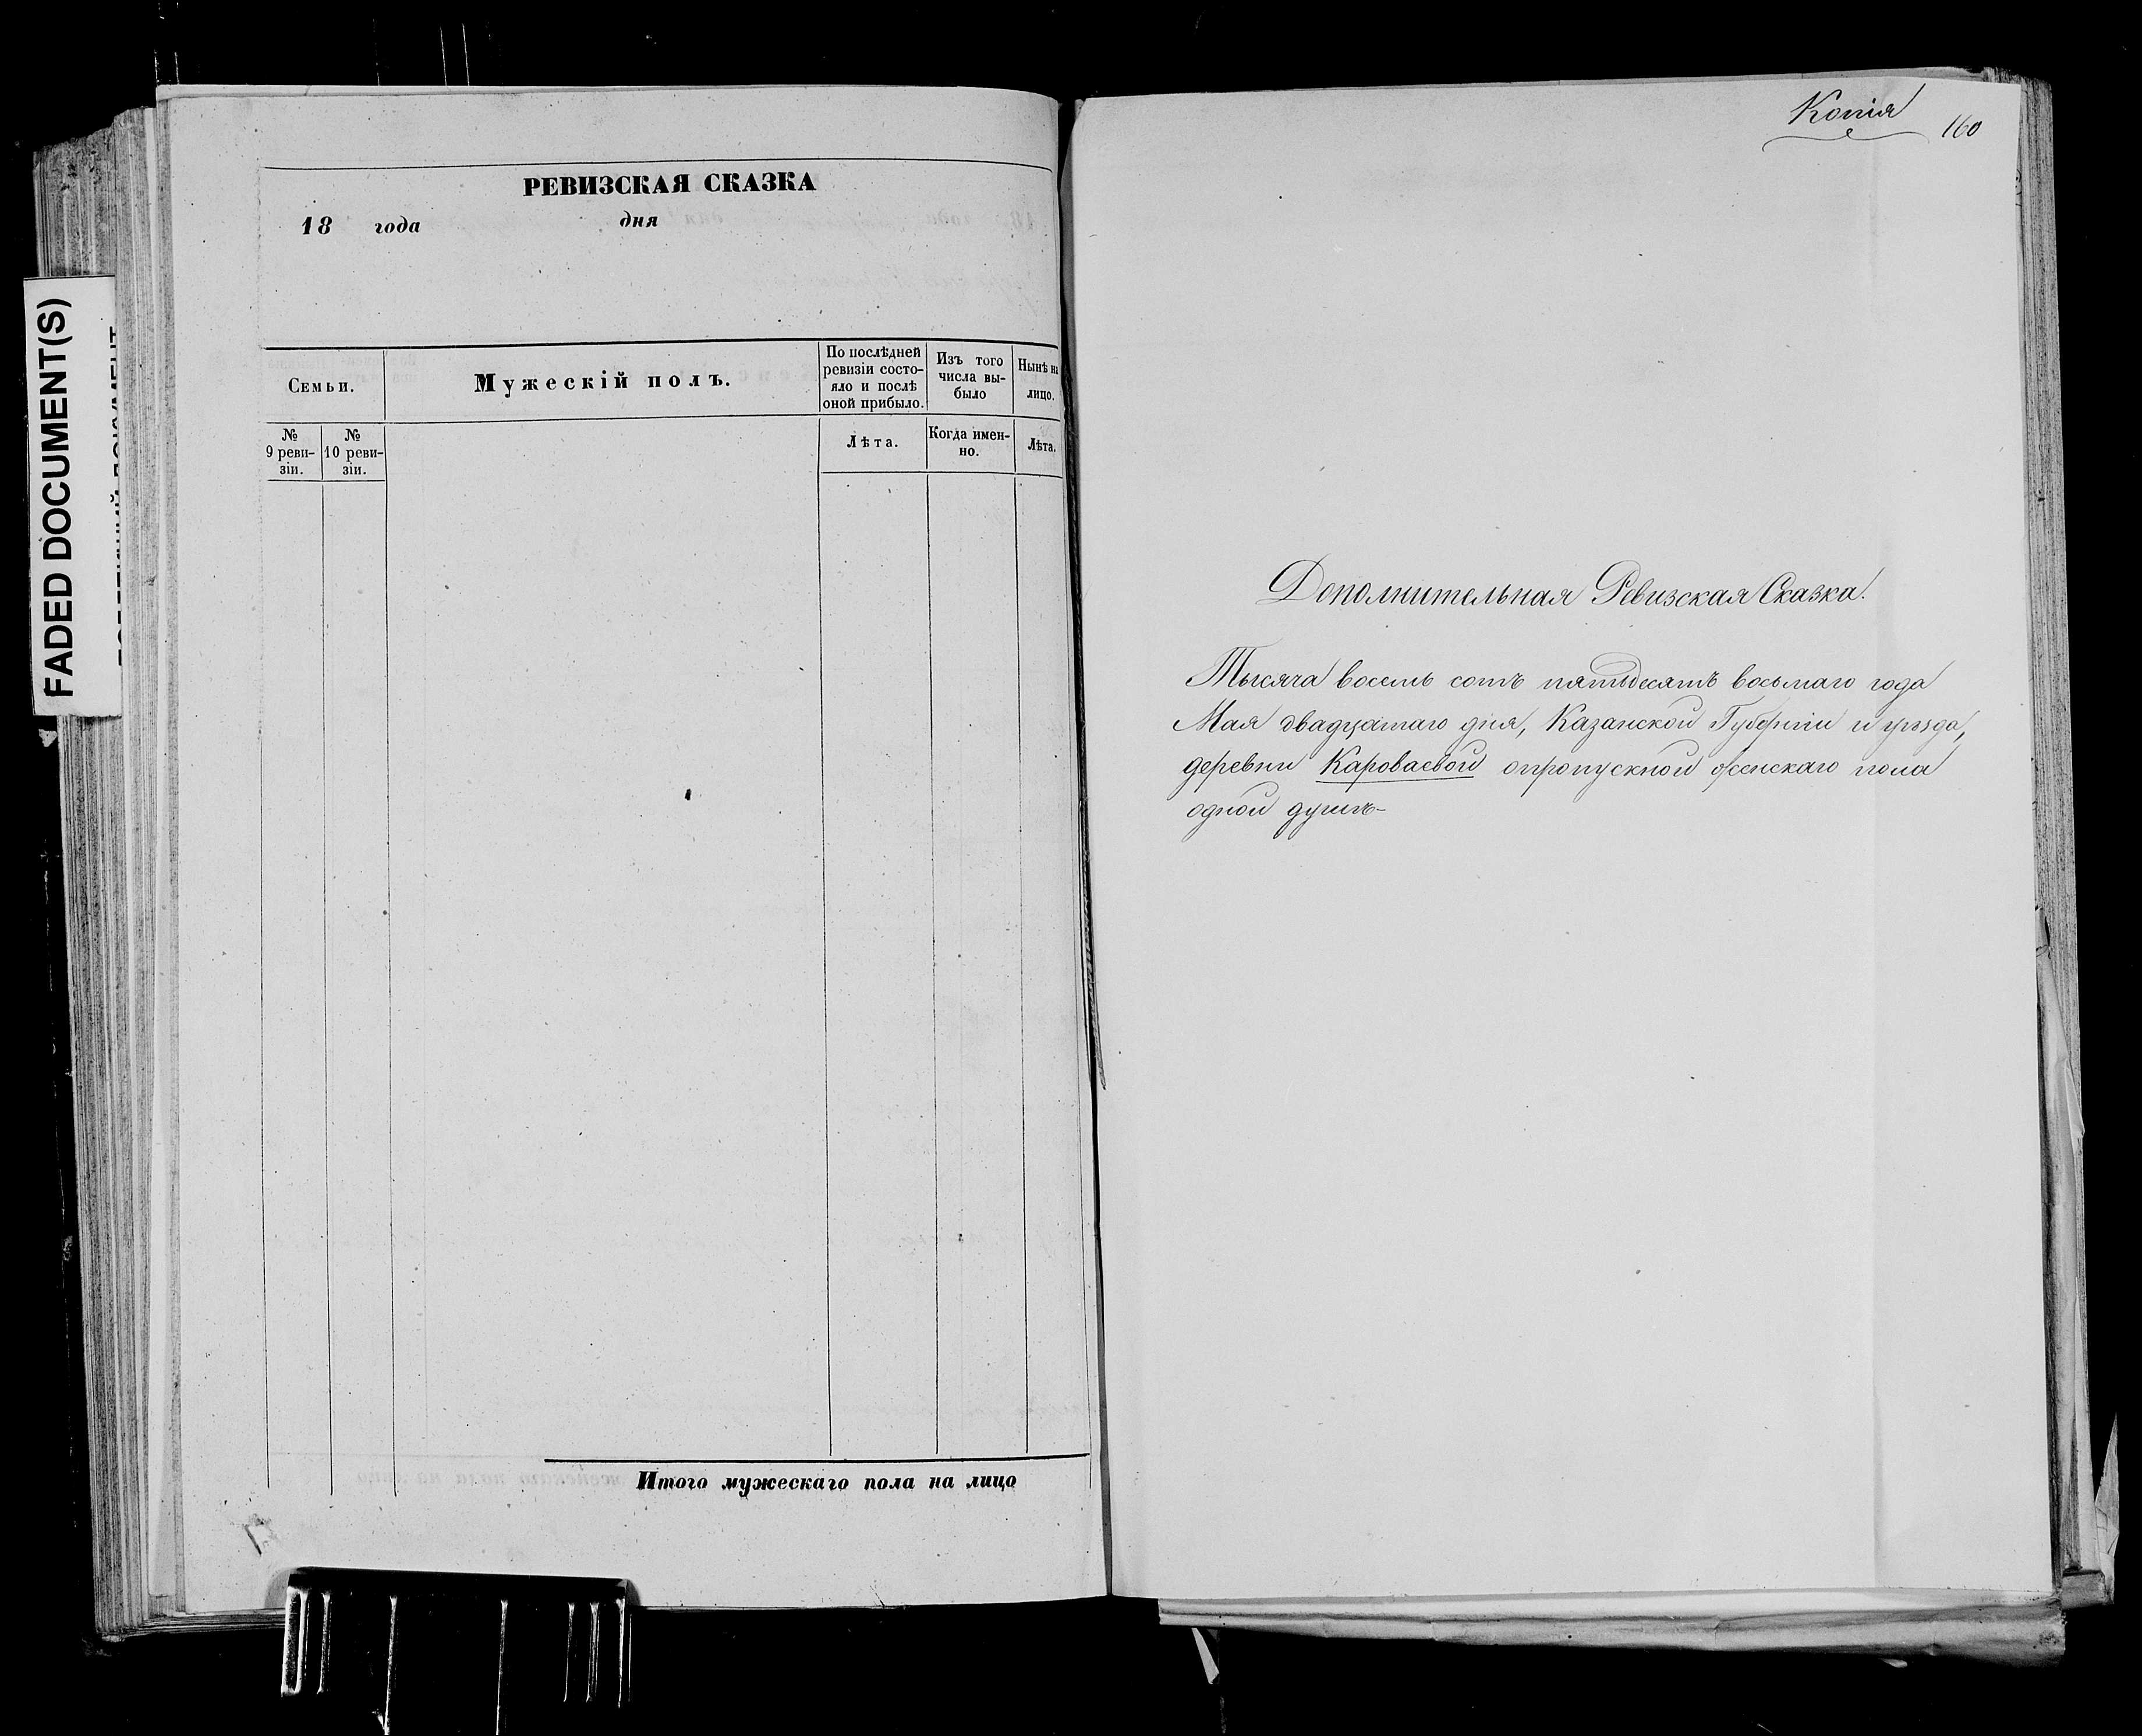 FADED DOCUMENT(S)
РЕВИЗСКАЯ СКАЗКА
18 года дня
Семьи.
Мужескій полъ.
По послѣдней
ревизіи состо-
яло и послѣ
оной прибыло.
Изъ того
числа вы-
было
Нынѣ на
лицо.
№
9 реви-
зіи.
№
10 реви-
зіи.
Лѣта.
Когда имен-
но.
Лѣта.
Итого мужескаго пола на лицо
Копія
160
Дополнительная Ревизская Сказка.
Тысяча восемь сотъ пятьдесятъ восьмаго года
Мая двадцатаго дня, Казанской Губерніи и уѣзда,
деревни Кароваевой о пропускной женскаго пола
одной душѣ-